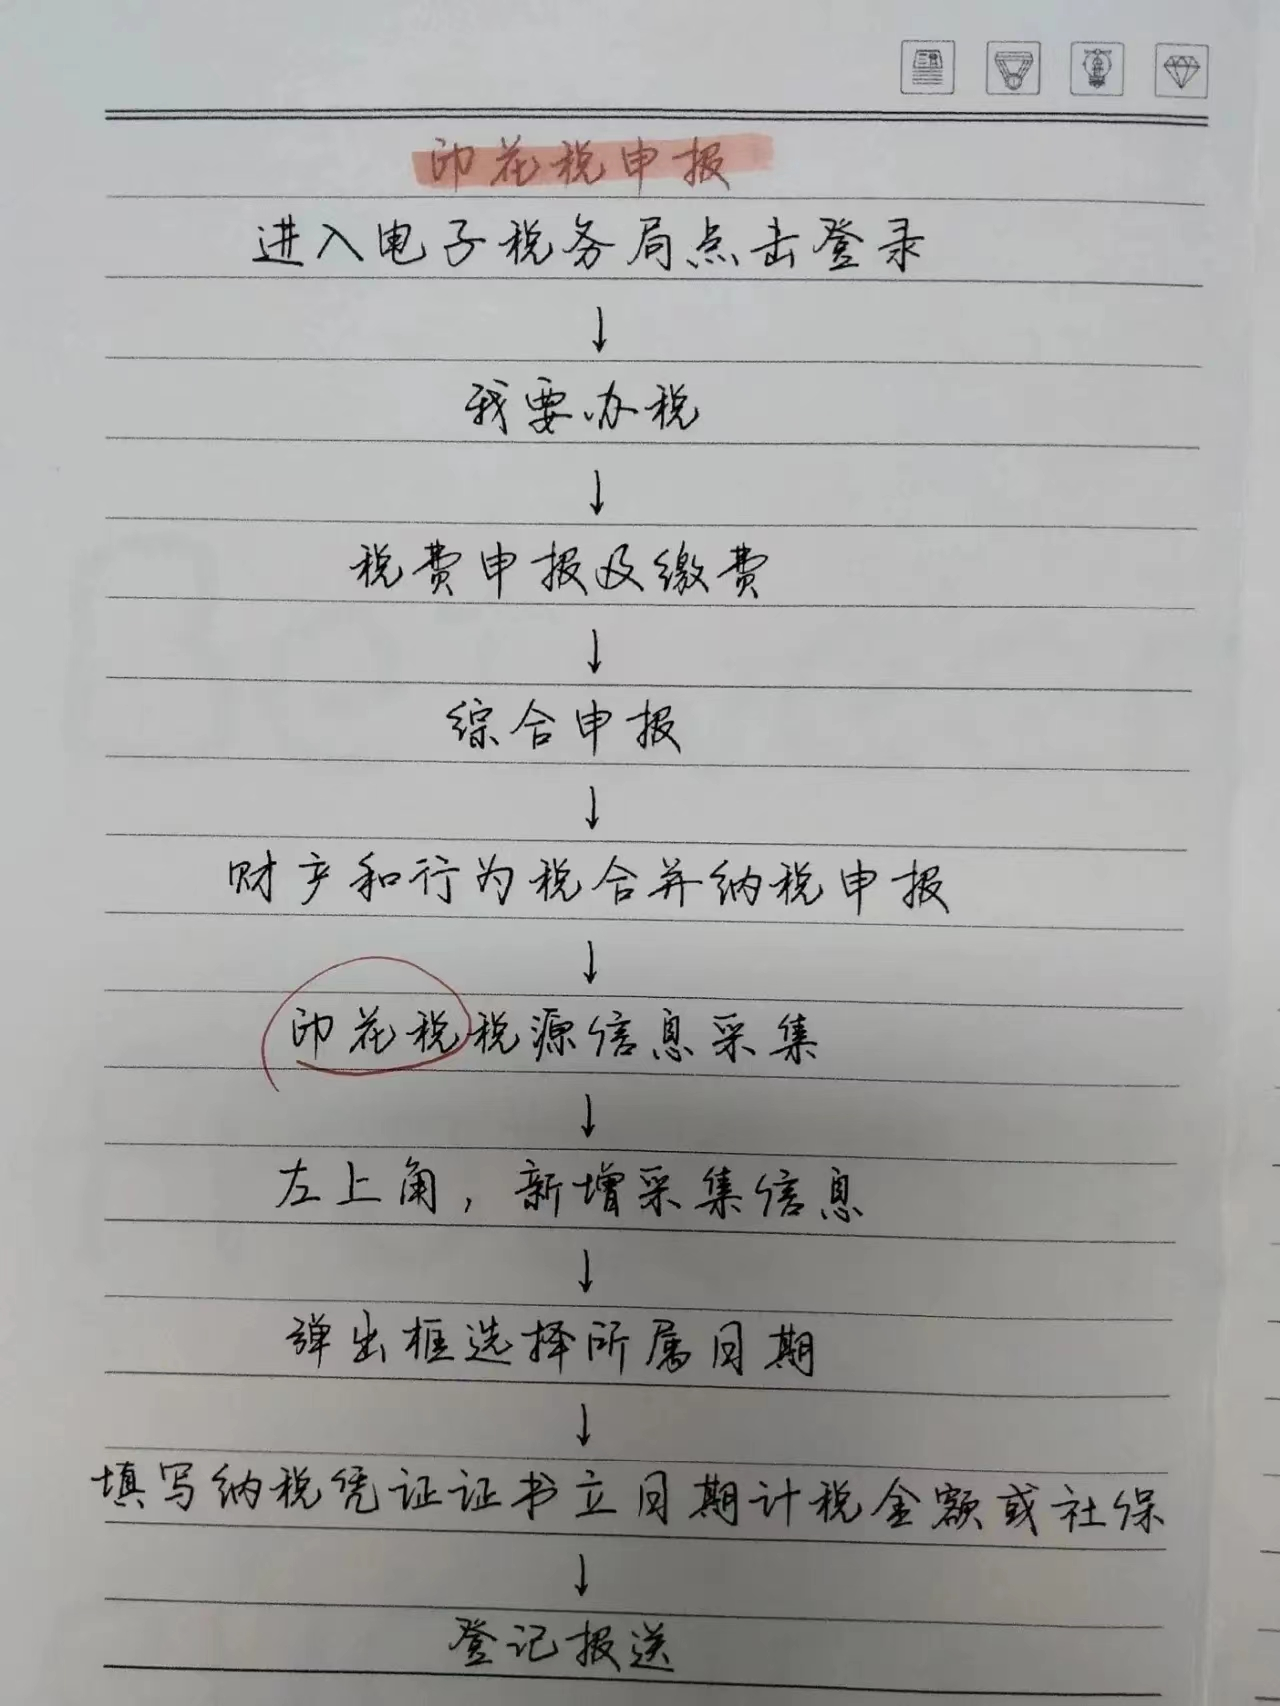 印花税申报
进入电子税务局点击登录
↓
我要办税
↓
税费申报及缴费
↓
综合申报
↓
财产和行为税合并纳税申报
↓
印花税税源信息采集
↓
左上角，新增采集信息
↓
弹出框选择所属日期
↓
填写纳税凭证证书立日期计税金额或社保
↓
登记报送